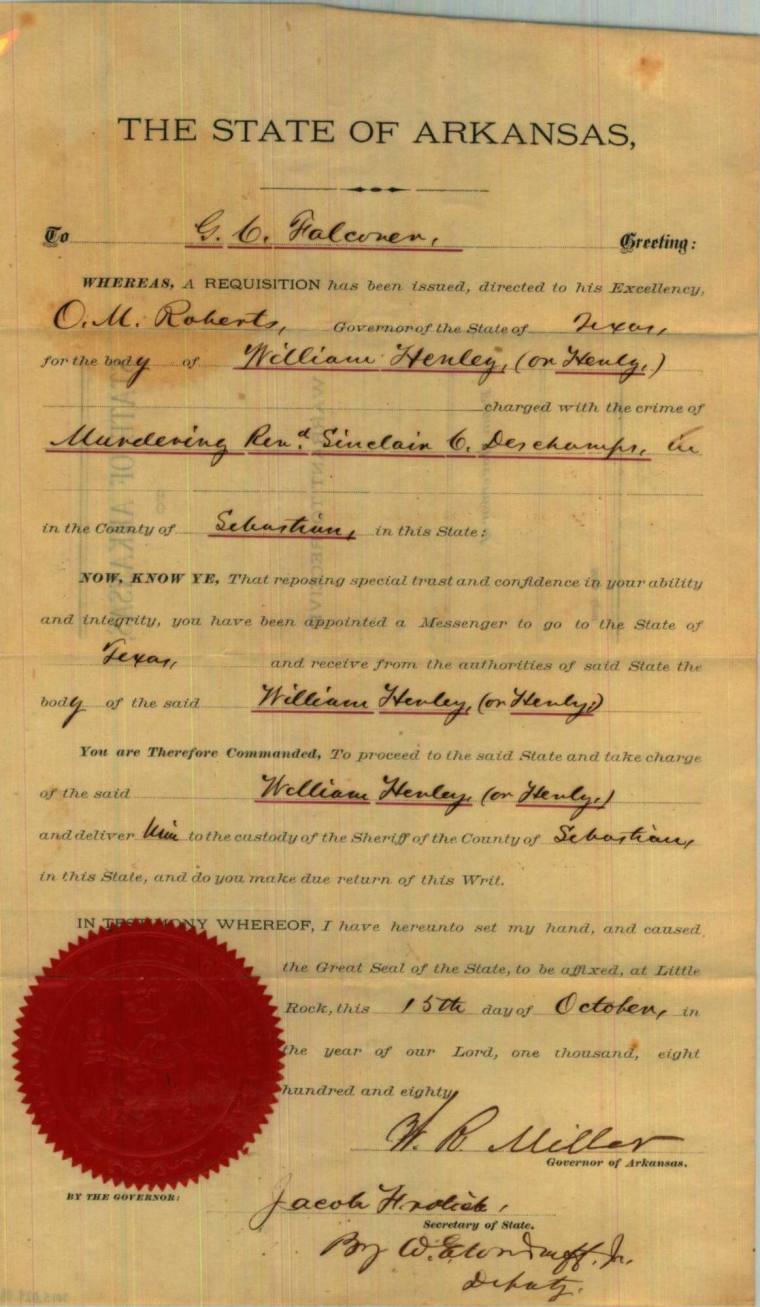 THE STATE OF ARKANSAS,
To G. C. Falconer, Greeting:
WHEREAS, A REQUISITION has been issued, directed to his Excellency,
O. M. Roberts, Governor of the State of Texas,
for the body of William Henley, (or Henly,)
charged with the crime of
Murdering Revd. Sinclair C. Deschamps, in
in the County of Sebastian, in this State:
NOW, KNOW YE, That reposing special trust and confidence in your ability
and integrity, you have been appointed a Messenger to go to the State of
Texas, and receive from the authorities of said State the
body of the said William Henley, (or Henly,)
You are Therefore Commanded, To proceed to the said State and take charge
of the said William Henley, (or Henly,)
and deliver him to the custody of the Sheriff of the County of Sebastian,
in this State, and do you make due return of this Writ.
IN TESTIMONY WHEREOF, I have hereunto set my hand, and caused
the Great Seal of the State, to be affixed, at Little
Rock, this 15th day of October, in
the year of our Lord, one thousand, eight
hundred and eighty
W. R. Miller
Governor of Arkansas.
BY THE GOVERNOR:
Jacob Frolich,
Secretary of State.
By W. E. Woodruff, Jr.
Deputy.